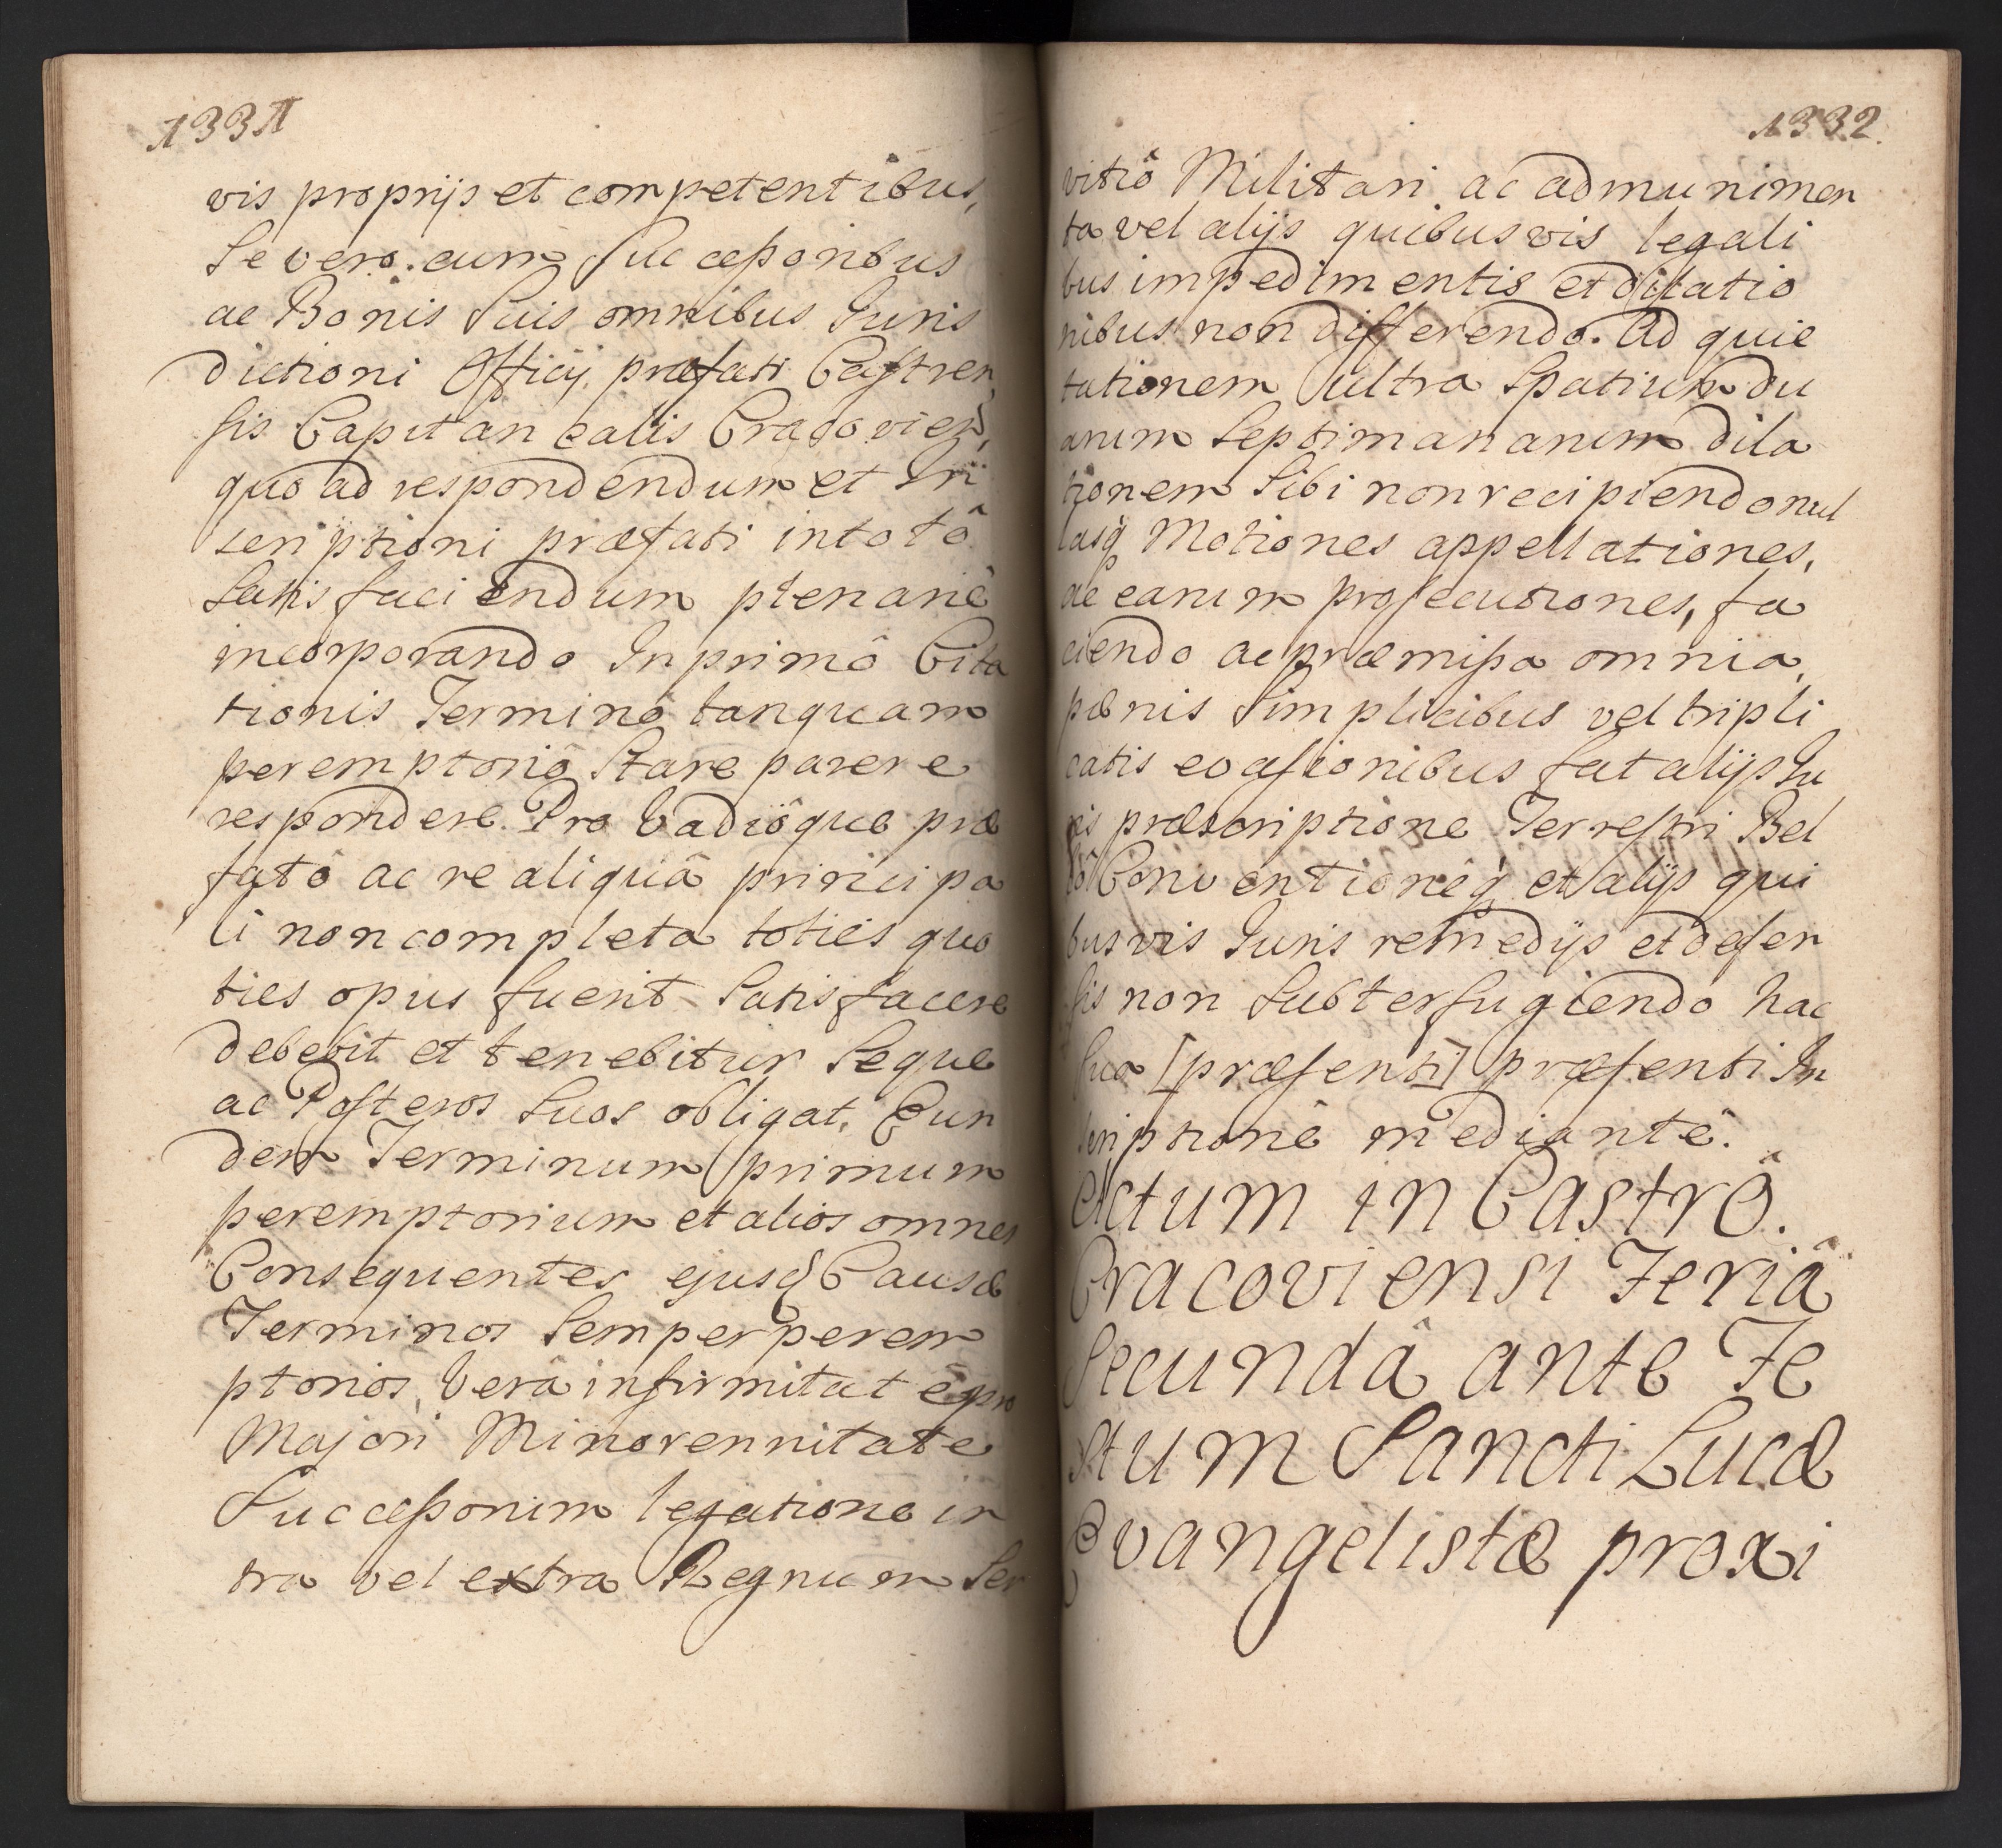 1331
vis proprijs et competentibus,
Se vero cum Successoribus
ac Bonis Suis omnibus Juris
dictioni Officij præfati Castren
sis Capitanealis Cracovien̄,
quo ad respondendum et In
scriptioni præfati in totô
satis faciendum plenariê
incorporando In primô Cita
tionis Terminô tanquam
peremptoriô Stare parere
respondere. Pro Vadiôque præ
fatô ac re aliquâ principa
li non completa toties quo
ties opus fuerit Satisfacere
debebit et tenebitur Seque
ac Posteros Suos obligat. Eun
dem Terminum primum
peremptorium et alios omnes
Consequentes ejusq Causæ
Terminos Semper perem
ptorios, Verâ infirmitatê pro
Majori Minorennitate
Successorum legatione in
tra vel extra Regnum Ser
1332.
vitiô Militari ac admunimen
ta vel alijs quibusvis legali
bus impedimentis et dilatio
nibus non differendo. Ad quie
tationem ultra Spatium du
arum Septimanarum dila
tionem Sibi non recipiendo nul
lasq Motiones appellationes,
ac earum prosecutiones, fa
ciendo ac præmissa omnia,
pœnis Simplicibus vel tripli
catis evasionibus fatalijs Ju
ris præscriptione Terrestri Bel
lô Conventionêq et alijs qui
busvis Juris remedijs et defen
sis non Subterfugiendo hac
Sua [præsenti] præsenti In
scriptionê mediantê.
Actum in Castrô
Cracoviensi Feriâ
Secundâ ante Fe
stum Sancti Lucæ
Evangelistæ proxi